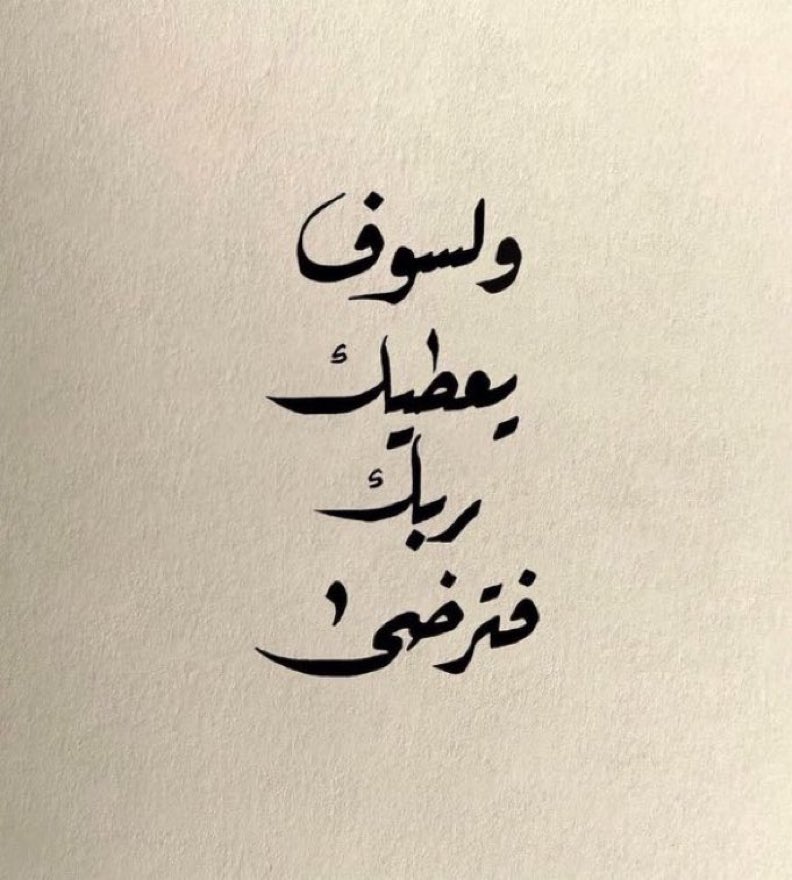 ولسوف
يعطيك
ربك
فترضى